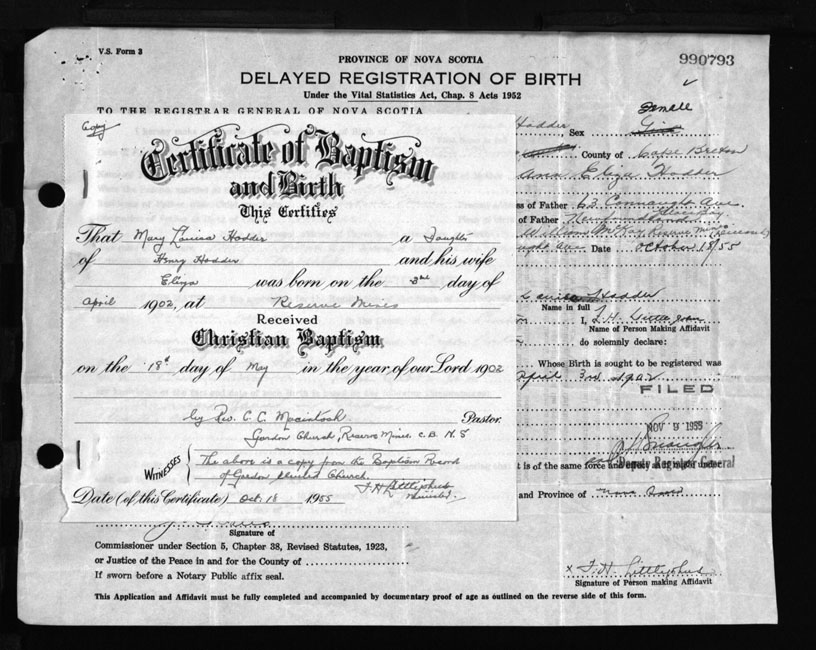 V.S. Form 3
PROVINCE OF NOVA SCOTIA
990793
DELAYED REGISTRATION OF BIRTH
Under the Vital Statistics Act, Chap. 8 Acts 1952
TO THE REGISTRAR GENERAL OF NOVA SCOTIA
Female
Hodder Sex Girl
County of Cape Breton
Ann Eliza Hodder
ss of Father 63 Connaught Ave.
Glace Bay
of Father Newfoundland
William McKay Reserve Mines
ught Ave Date October 18/55
Louise Hodder
Name in full
I, F. H. Littlejohns
Name of Person Making Affidavit
do solemnly declare:
Whose Birth is sought to be registered was
April 3rd 1902
FILED
NOV 3 1955
Deputy Registrar General
t is of the same force and under
and Province of Nova Scotia
Copy
Certificate of Baptism
and Birth
This Certifies
That Mary Louisa Hodder a Daughter
of Henry Hodder and his wife
Eliza was born on the 3rd day of
April 1902, at Reserve Mines
Received
Christian Baptism
on the 18th day of May in the year of our Lord 1902
by Rev. C. C. Macintosh Pastor.
Gordon Church, Reserve Mines. C.B. N.S
WITNESSES
The above is a copy from the Baptism Record
of Gordon United Church.
F. H. Littlejohns
Minister.
Date (of this Certificate) Oct. 18 1955
Signature of
Commissioner under Section 5, Chapter 38, Revised Statutes, 1923,
or Justice of the Peace in and for the County of
If sworn before a Notary Public affix seal.
x F. H. Littlejohns
Signature of Person making Affidavit
This Application and Affidavit must be fully completed and accompanied by documentary proof of age as outlined on the reverse side of this form.